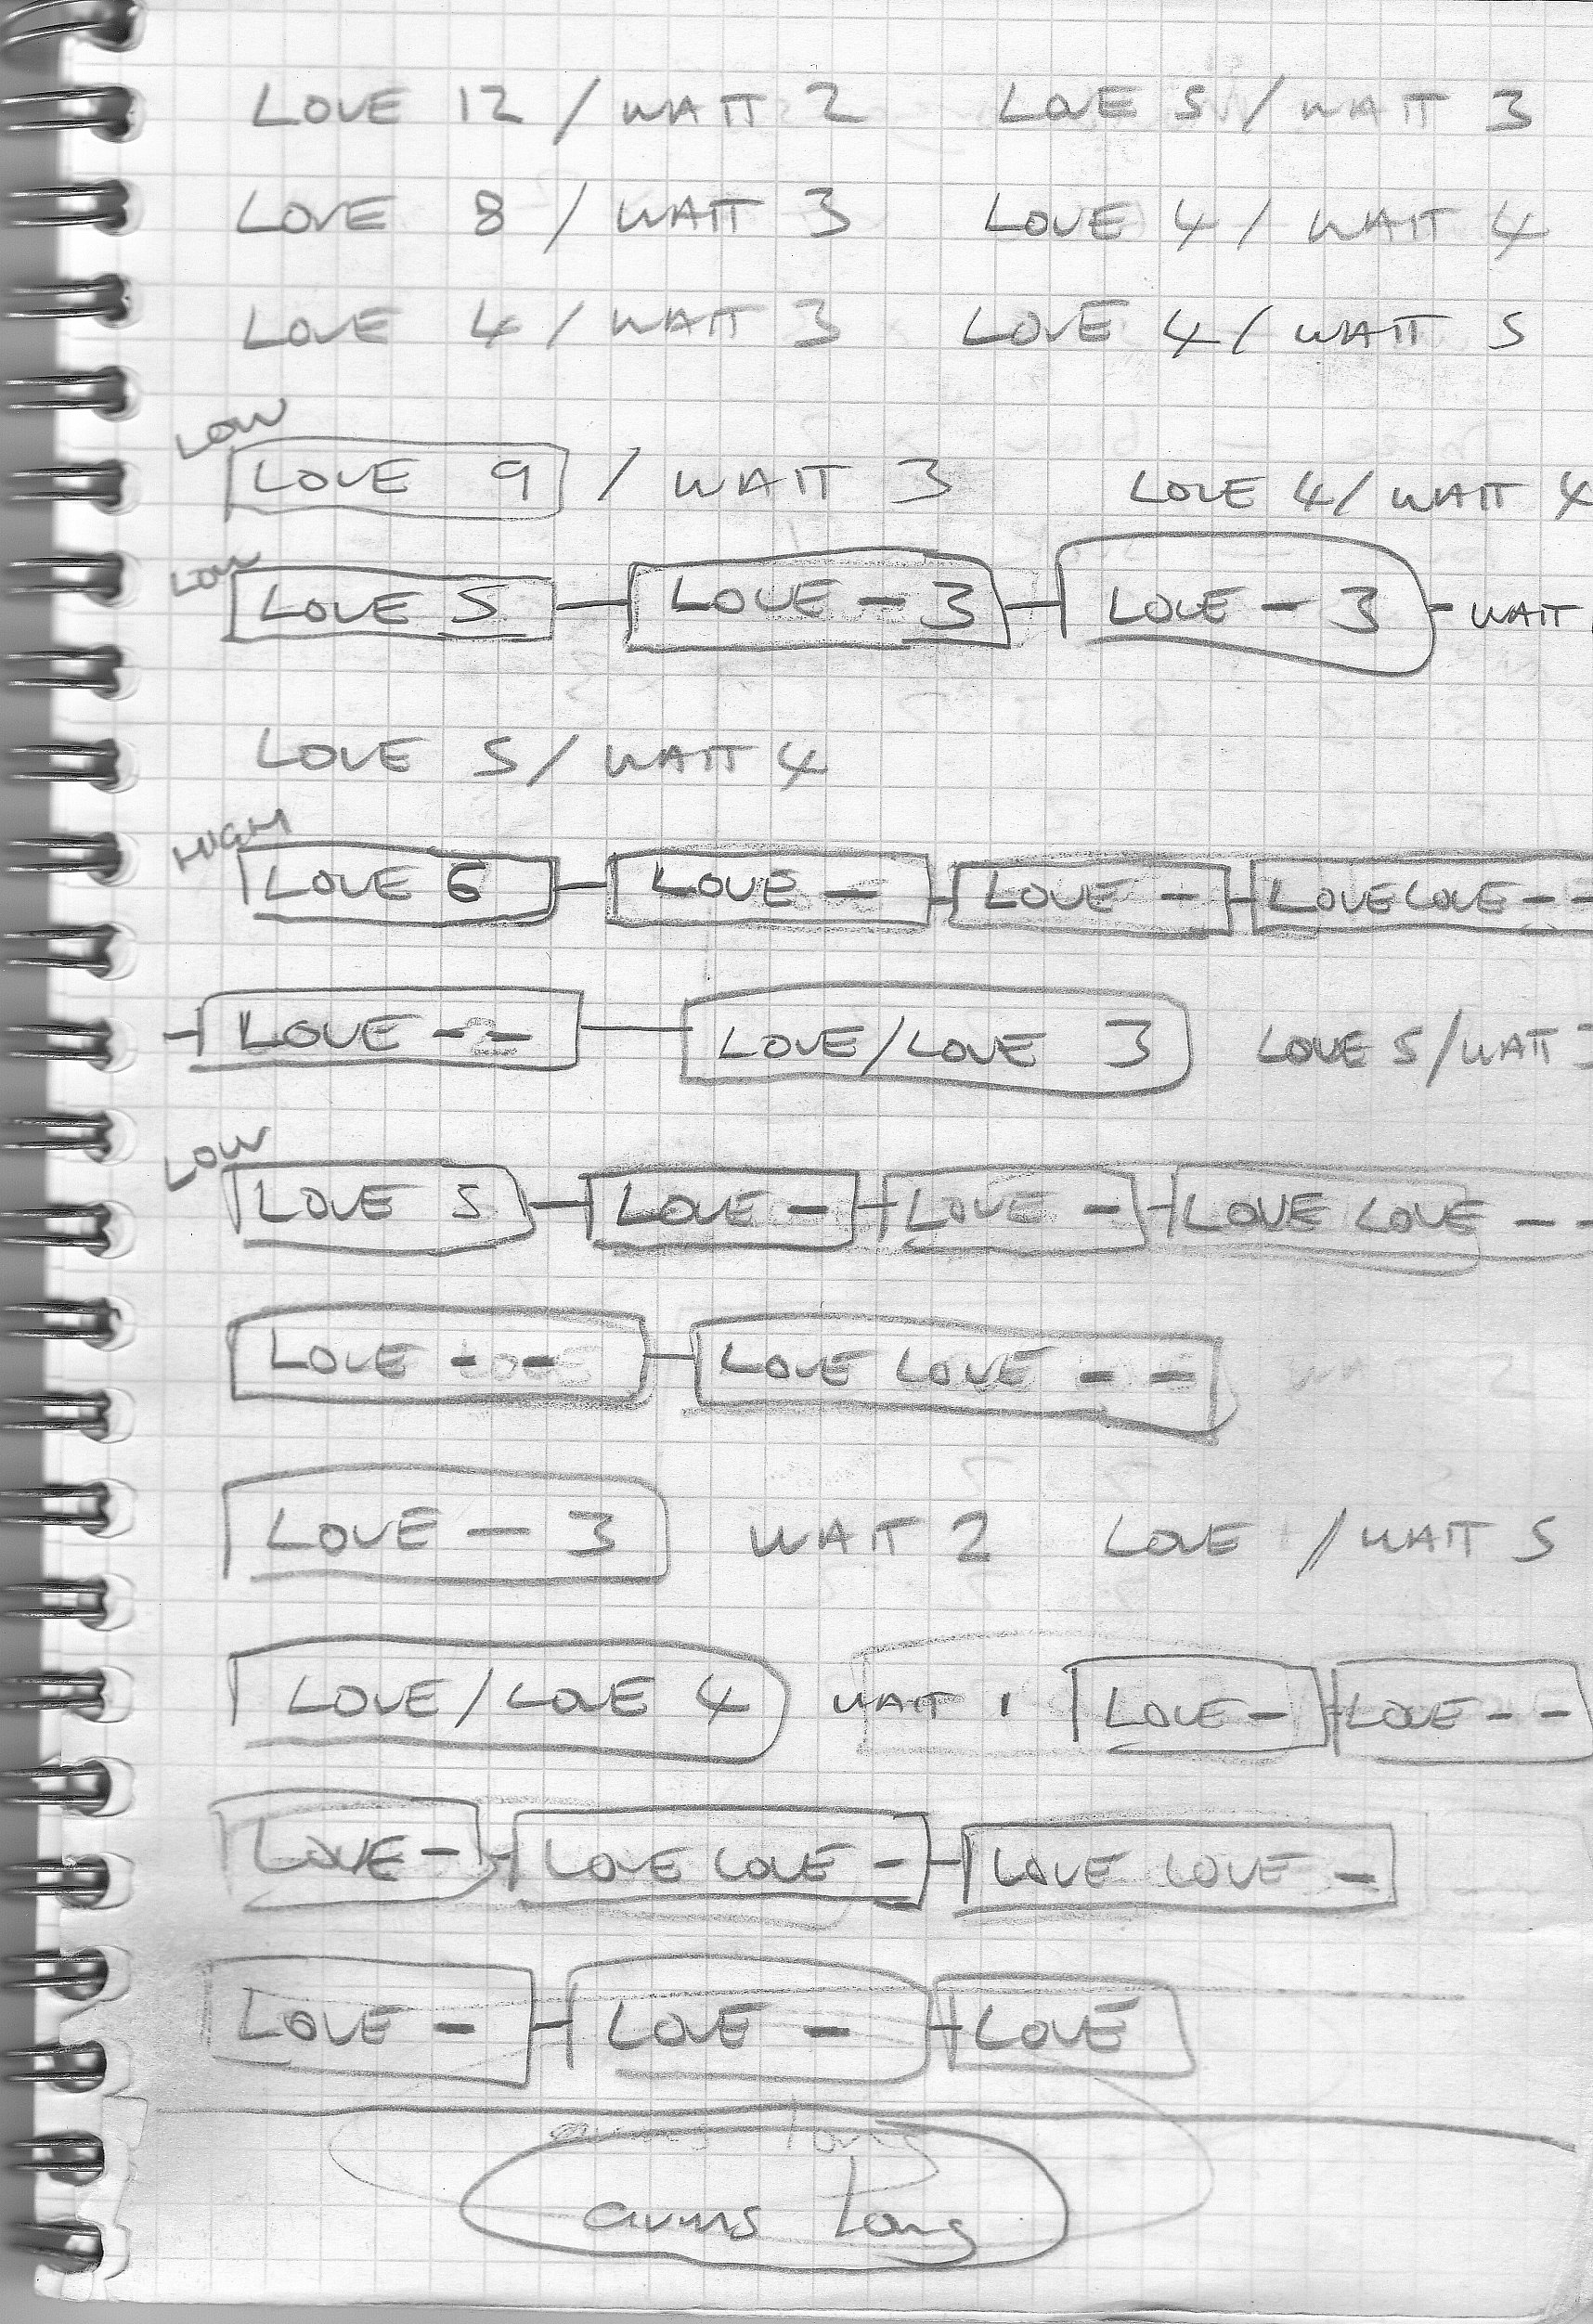 LOVE 12 / WAIT 2 LOVE 5 / WAIT 3
LOVE 8 / WAIT 3 LOVE 4 / WAIT 4
LOVE 4 / WAIT 3 LOVE 4 / WAIT 5
LOW
LOVE 9 / WAIT 3 LOVE 4 / WAIT 4
LOW
LOVE 5 — LOVE - 3 — LOVE - 3 - WAIT
LOVE 5 / WAIT 4
HIGH
LOVE 6 — LOVE - - LOVE - - LOVE LOVE - -
- LOVE - - — LOVE/LOVE 3 LOVE 5 / WAIT
LOW
LOVE 5 — LOVE - - LOVE - - LOVE LOVE - -
LOVE - - — LOVE LOVE - -
LOVE - 3 WAIT 2 LOVE / WAIT 5
LOVE / LOVE 4 WAIT 1 LOVE - LOVE - -
LOVE - - LOVE LOVE - - LOVE LOVE -
LOVE - - LOVE - - LOVE
arms long